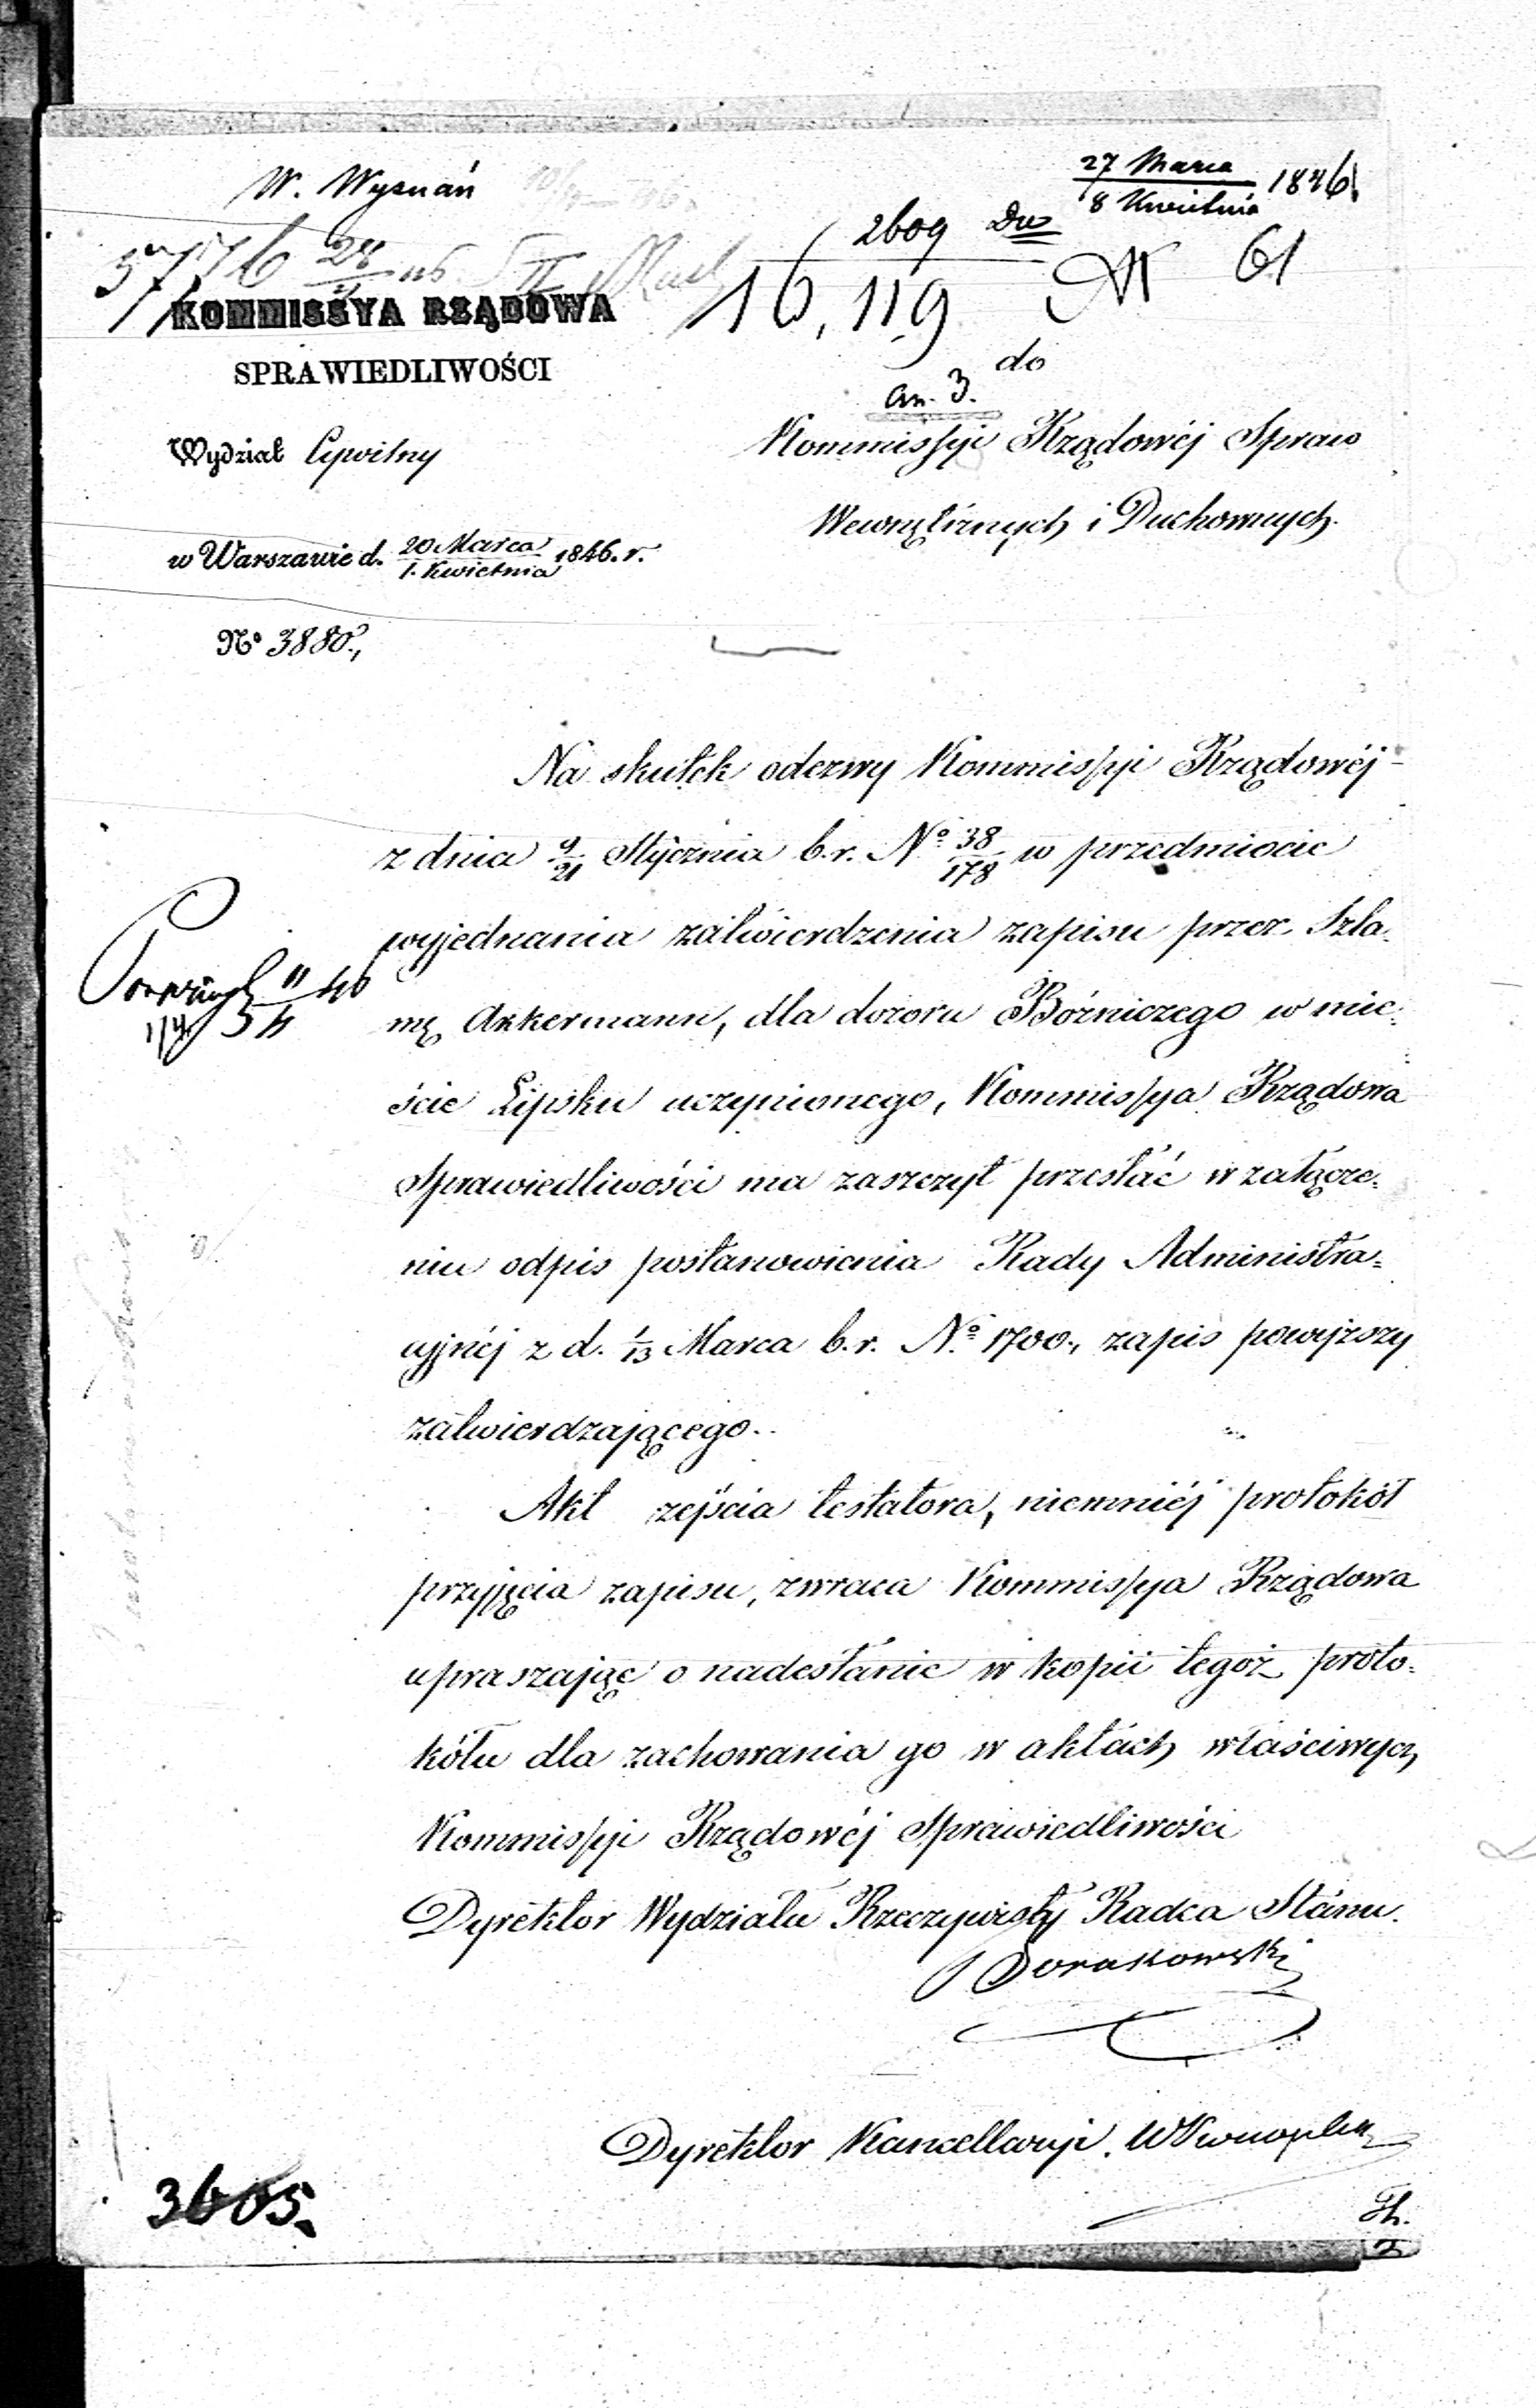 W. Wyznań
27 Marca
8 Kwietnia 1846.
2609 Duz
5776 28
61
16,119
KOMMISSYA RZĄDOWA
SPRAWIEDLIWOŚCI
do
an. 3.
Wydział Cywilny
Kommissyi Rządowéj Spraw
Wewnętrznych i Duchownych.
w Warszawie d. 20 Marca / 1. Kwietnia 1846. r.
No 3880.,
Na skutek odezwy Kommissyi Rządowéj
z dnia 9/21 Stycznia b.r. No 38/178 w przedmiocie
wyjednania zatwierdzenia zapisu przez Szla-
mę Akkermann, dla dozoru Bóżniczego w mie-
ście Lipsku uczynionego, Kommissya Rządowa
Sprawiedliwości ma zaszczyt przesłać w załącze-
niu odpis postanowienia Rady Administra-
cyjnéj z d. 1/13 Marca b.r. No 1700., zapis powyższy
zatwierdzającego.
Akt zejścia testatora, niemniéj protokół
przyjęcia zapisu, zwraca Kommissya Rządowa
upraszając o nadesłanie w kopii tegoż proto-
kółu dla zachowania go w aktach właściwych
Kommissyi Rządowéj Sprawiedliwości
Dyrektor Wydziału Rzeczywisty Radca Stanu.
Dyrektor Kancellaryi.
3605.